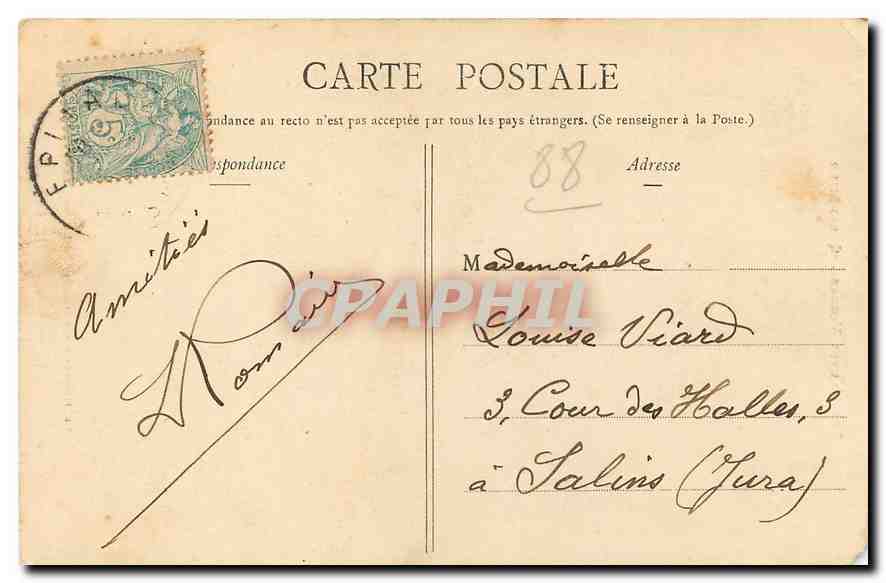 CARTE POSTALE
pondance au recto n'est pas acceptée par tous les pays étrangers. (Se renseigner à la Poste.)
spondance
Adresse
88
EPI
5
Amitiés
Romain
CPAPHIL
Mademoiselle
Louise Viard
3, Cour des Halles, 3
à Salins (Jura)